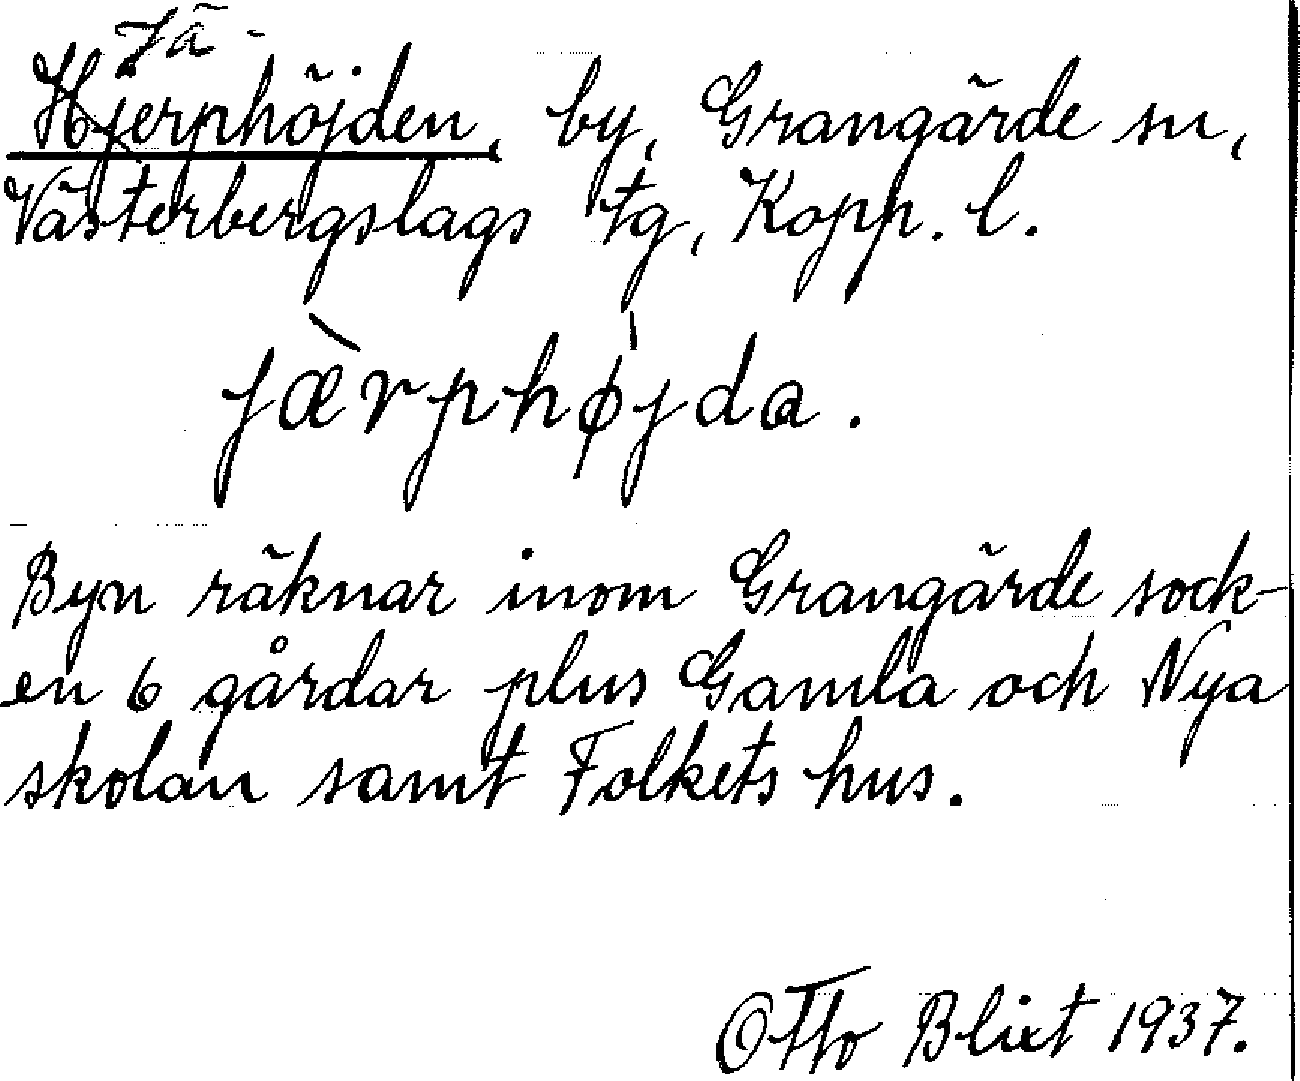 Jä-
Hjerphöjden, by, Grangärde sn,
Västerbergslags tg, Kopp. l.
jæ̀rphø̍jda.
Byn räknar inom Grangärde sock-
en 6 gårdar plus Gamla och Nya
skolan samt Folkets hus.
Otto Blixt 1937.